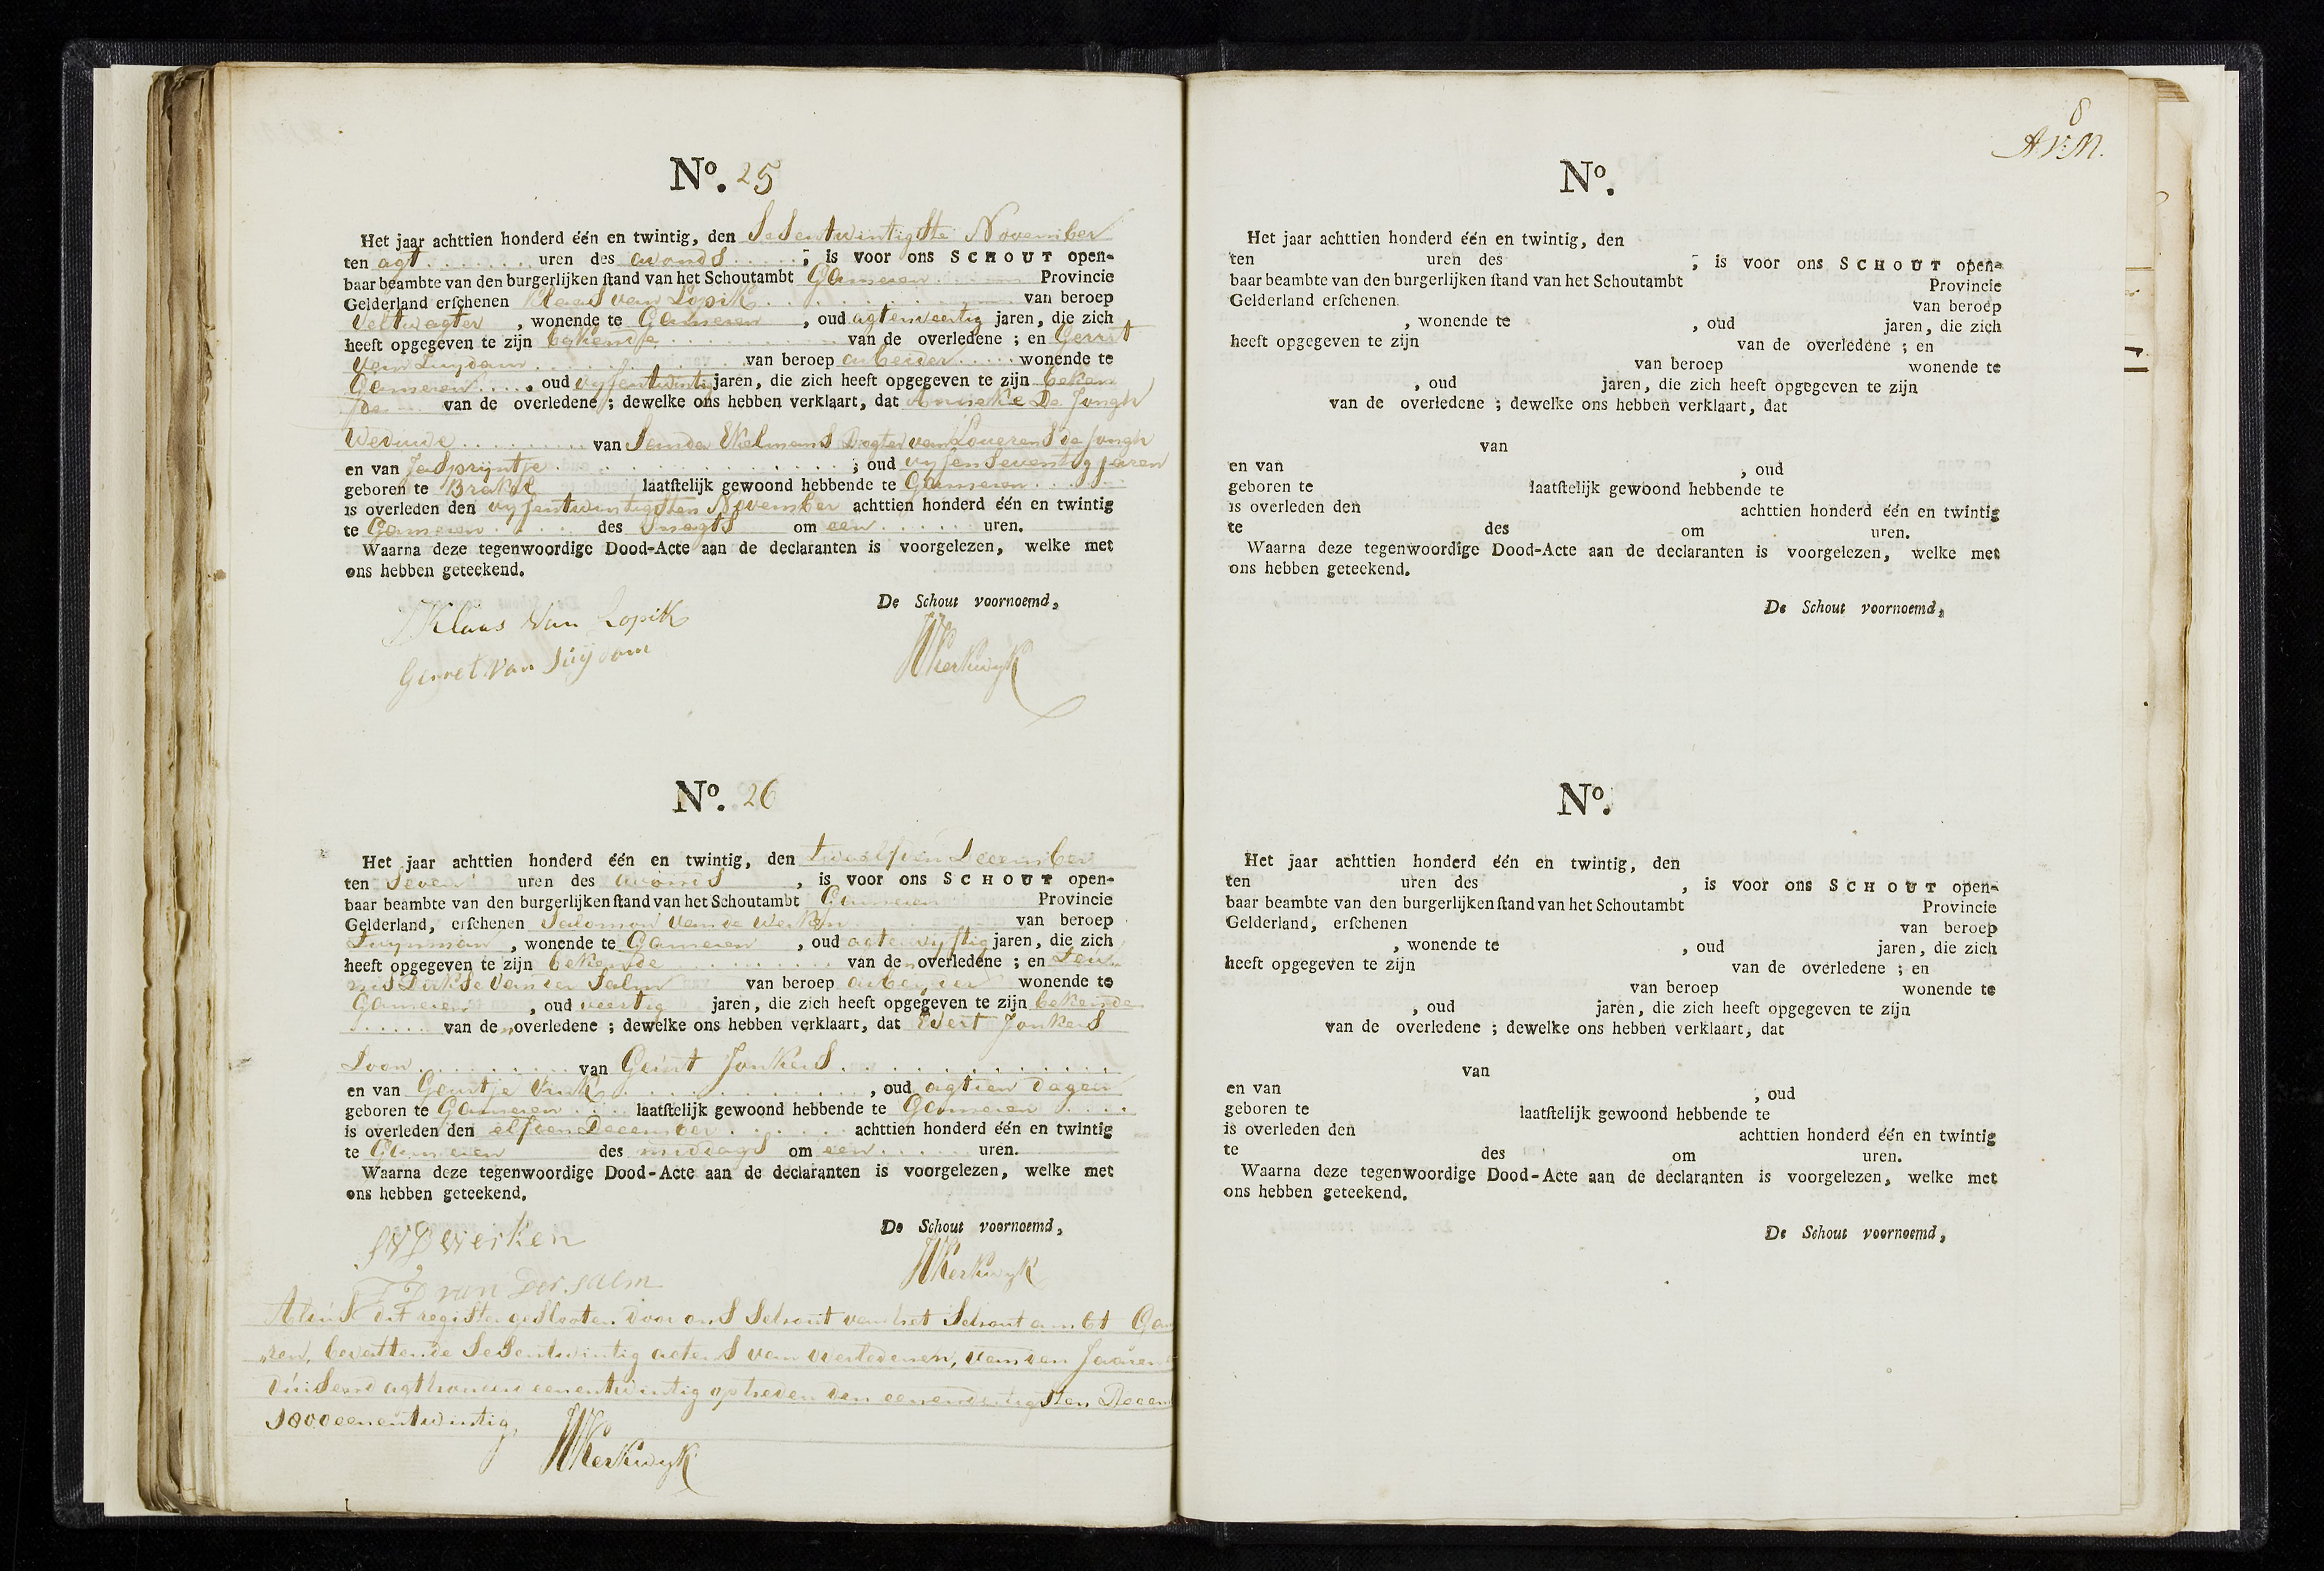 No. 25
Het jaar achttien honderd één en twintig, den Sesentwintigste November
ten agt uren des avonds ; is voor ons SCHOUT open-
baar beambte van den burgerlijken ſtand van het Schoutambt Gameren Provincie
Gelderland erſchenen Klaas van Lopik van beroep
Veltwagter , wonende te Gameren , oud agtenveertig jaren, die zich
heeft opgegeven te zijn bekende van de overledene ; en Gerrit
van Tuijdam van beroep arbeider wonende te
Gameren , oud vyfentwintig jaren, die zich heeft opgegeven te zijn beken
de van de overledene ; dewelke ons hebben verklaart, dat Anneke De Jongh
Weduwe van Sander Ekelmans Dogter van Louerens de Jongh
en van Jaspryntje ; oud vyfenseventig jaren
geboren te Brakel laatſtelijk gewoond hebbende te Gameren
is overleden den vyfentwintigsten November achttien honderd één en twintig
te Gameren des snagts om een uren.
Waarna deze tegenwoordige Dood-Acte aan de declaranten is voorgelezen, welke met
ons hebben geteekend.
De Schout voornoemd,
Klaas Van Lopik
Gerret van
Kerkwyk
No. 26
Het jaar achttien honderd één en twintig, den twaalfden December
ten Seven uren des avonds , is voor ons SCHOUT open-
baar beambte van den burgerlijken ſtand van het Schoutambt Gameren Provincie
Gelderland, erſchenen Salomon van de Werken van beroep
, wonende te Gameren , oud agtenvyftig jaren, die zich
heeft opgegeven te zijn bekende van den overledene ; en Teu
nis Dirkse van der Salm van beroep arbeider wonende te
Gameren , oud veertig jaren, die zich heeft opgegeven te zijn bekende
van den overledene ; dewelke ons hebben verklaart, dat Evert Jonkers
Soon van Geurt Jonkers
en van Geurtje Vink , oud agtien dagen
geboren te Gameren laatſtelijk gewoond hebbende te Gameren
is overleden den elfden December achttien honderd één en twintig
te Gameren des middags om een uren.
Waarna deze tegenwoordige Dood-Acte aan de declaranten is voorgelezen, welke met
ons hebben geteekend.
De Schout voornoemd,
SVD Werken
TD van Der Salm
Kerkwyk
Aldus dit register geslooten door ons Schout van het Schout ambt Ga
ren, bevattende Sesentwintig actens van overledenen, van den Jaaren
duisend agthondert eenentwintig op heden den eenendertigsten Decem
1800 eenentwintig
Kerkwyk
8
AVM.
No.
Het jaar achttien honderd één en twintig, den
ten uren des ; is voor ons SCHOUT open-
baar beambte van den burgerlijken ſtand van het Schoutambt Provincie
Gelderland erſchenen van beroep
, wonende te , oud jaren, die zich
heeft opgegeven te zijn van de overledene ; en
van beroep wonende te
, oud jaren, die zich heeft opgegeven te zijn
van de overledene ; dewelke ons hebben verklaart, dat
van
en van , oud
geboren te laatſtelijk gewoond hebbende te
is overleden den achttien honderd één en twintig
te des om uren.
Waarna deze tegenwoordige Dood-Acte aan de declaranten is voorgelezen, welke met
ons hebben geteekend.
De Schout voornoemd,
No.
Het jaar achttien honderd één en twintig, den
ten uren des , is voor ons SCHOUT open-
baar beambte van den burgerlijken ſtand van het Schoutambt Provincie
Gelderland, erſchenen van beroep
, wonende te , oud jaren, die zich
heeft opgegeven te zijn van de overledene ; en
van beroep wonende te
, oud jaren, die zich heeft opgegeven te zijn
van de overledene ; dewelke ons hebben verklaart, dat
van
en van , oud
geboren te laatſtelijk gewoond hebbende te
is overleden den achttien honderd één en twintig
te des om uren.
Waarna deze tegenwoordige Dood-Acte aan de declaranten is voorgelezen, welke met
ons hebben geteekend.
De Schout voornoemd,